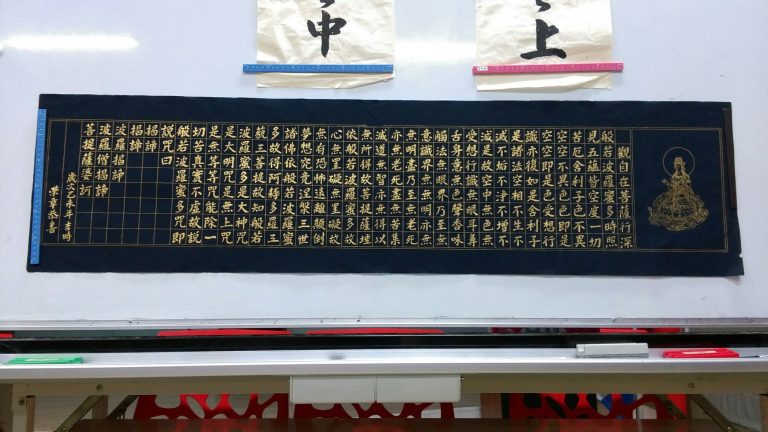 中
上
觀自在菩薩行深
般若波羅蜜多時照
見五蘊皆空度一切
苦厄舍利子色不異
空空不異色色即是
空空即是色受想行
識亦復如是舍利子
是諸法空相不生不
滅不垢不淨不增不
減是故空中無色無
受想行識無眼耳鼻
舌身意無色聲香味
觸法無眼界乃至無
意識界無無明亦無
無明盡乃至無老死
亦無老死盡無苦集
滅道無智亦無得以
無所得故菩提薩埵
依般若波羅蜜多故
心無罣礙無罣礙故
無有恐怖遠離顛倒
夢想究竟涅槃三世
諸佛依般若波羅蜜
多故得阿耨多羅三
藐三菩提故知般若
波羅蜜多是大神咒
是大明咒是無上咒
是無等等咒能除一
切苦真實不虛故說
般若波羅蜜多咒即
說咒曰
揭諦
揭諦
波羅揭諦
波羅僧揭諦
菩提薩婆訶
歲次乙未年吉時
章恭書